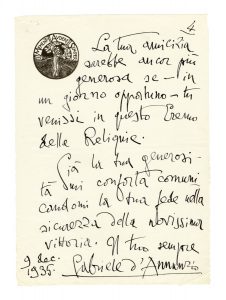 4
La tua amicizia
sarebbe ancor più
generosa se – in
un giorno opportuno – tu
venissi in questo Eremo
delle Reliquie.
Già la tua generosi-
tà mi conforta comuni
candomi la tua fede nella
sicurezza della novissima
vittoria. Il tuo sempre
9 dec.
1935.
Gabriele d'Annunzio